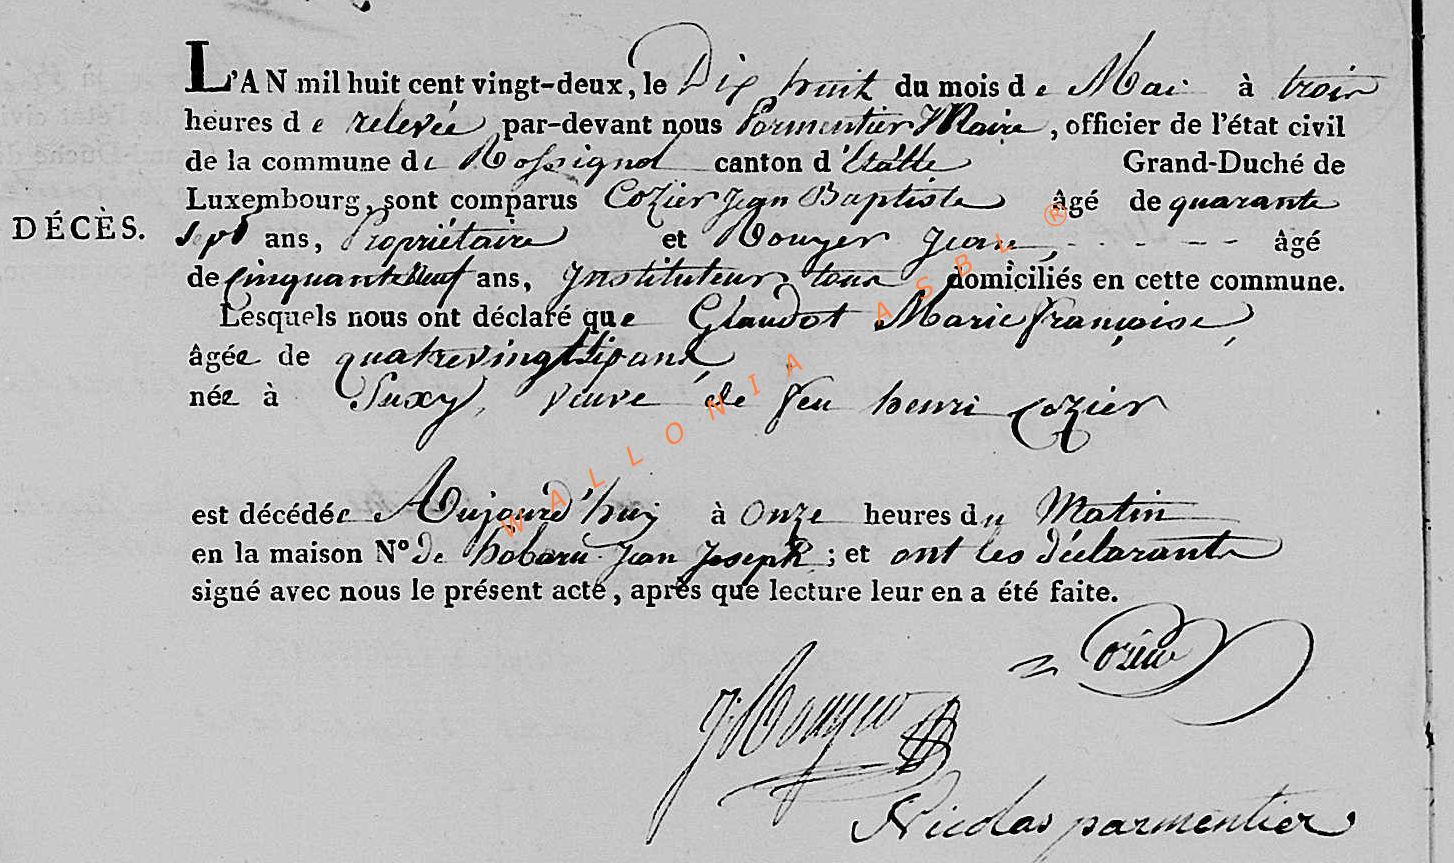 L'AN mil huit cent vingt-deux, le Dix huit du mois de Mai à trois
heures de relevée par-devant nous Parmentier Maire, officier de l'état civil
de la commune de Rossignol canton d'Etalle Grand-Duché de
Luxembourg, sont comparus Cozier Jean Baptiste âgé de quarante
DÉCÈS.
Sept ans, Propriétaire et Rouyer Jean - - - - - - âgé
de cinquante neuf ans, Instituteur, tous domiciliés en cette commune.
Lesquels nous ont déclaré que Glaudot Marie françoise,
âgée de quatrevingt ans
née à Suxy, veuve de feu henri Cozier
est décédée Aujourd'huy à Onze heures du Matin
en la maison N° de hobaru Jean Joseph ; et ont les déclarants
signé avec nous le présent acte, après que lecture leur en a été faite.
Cozier
J Rouyer
Nicolas parmentier
WALLONIA ASBL ®